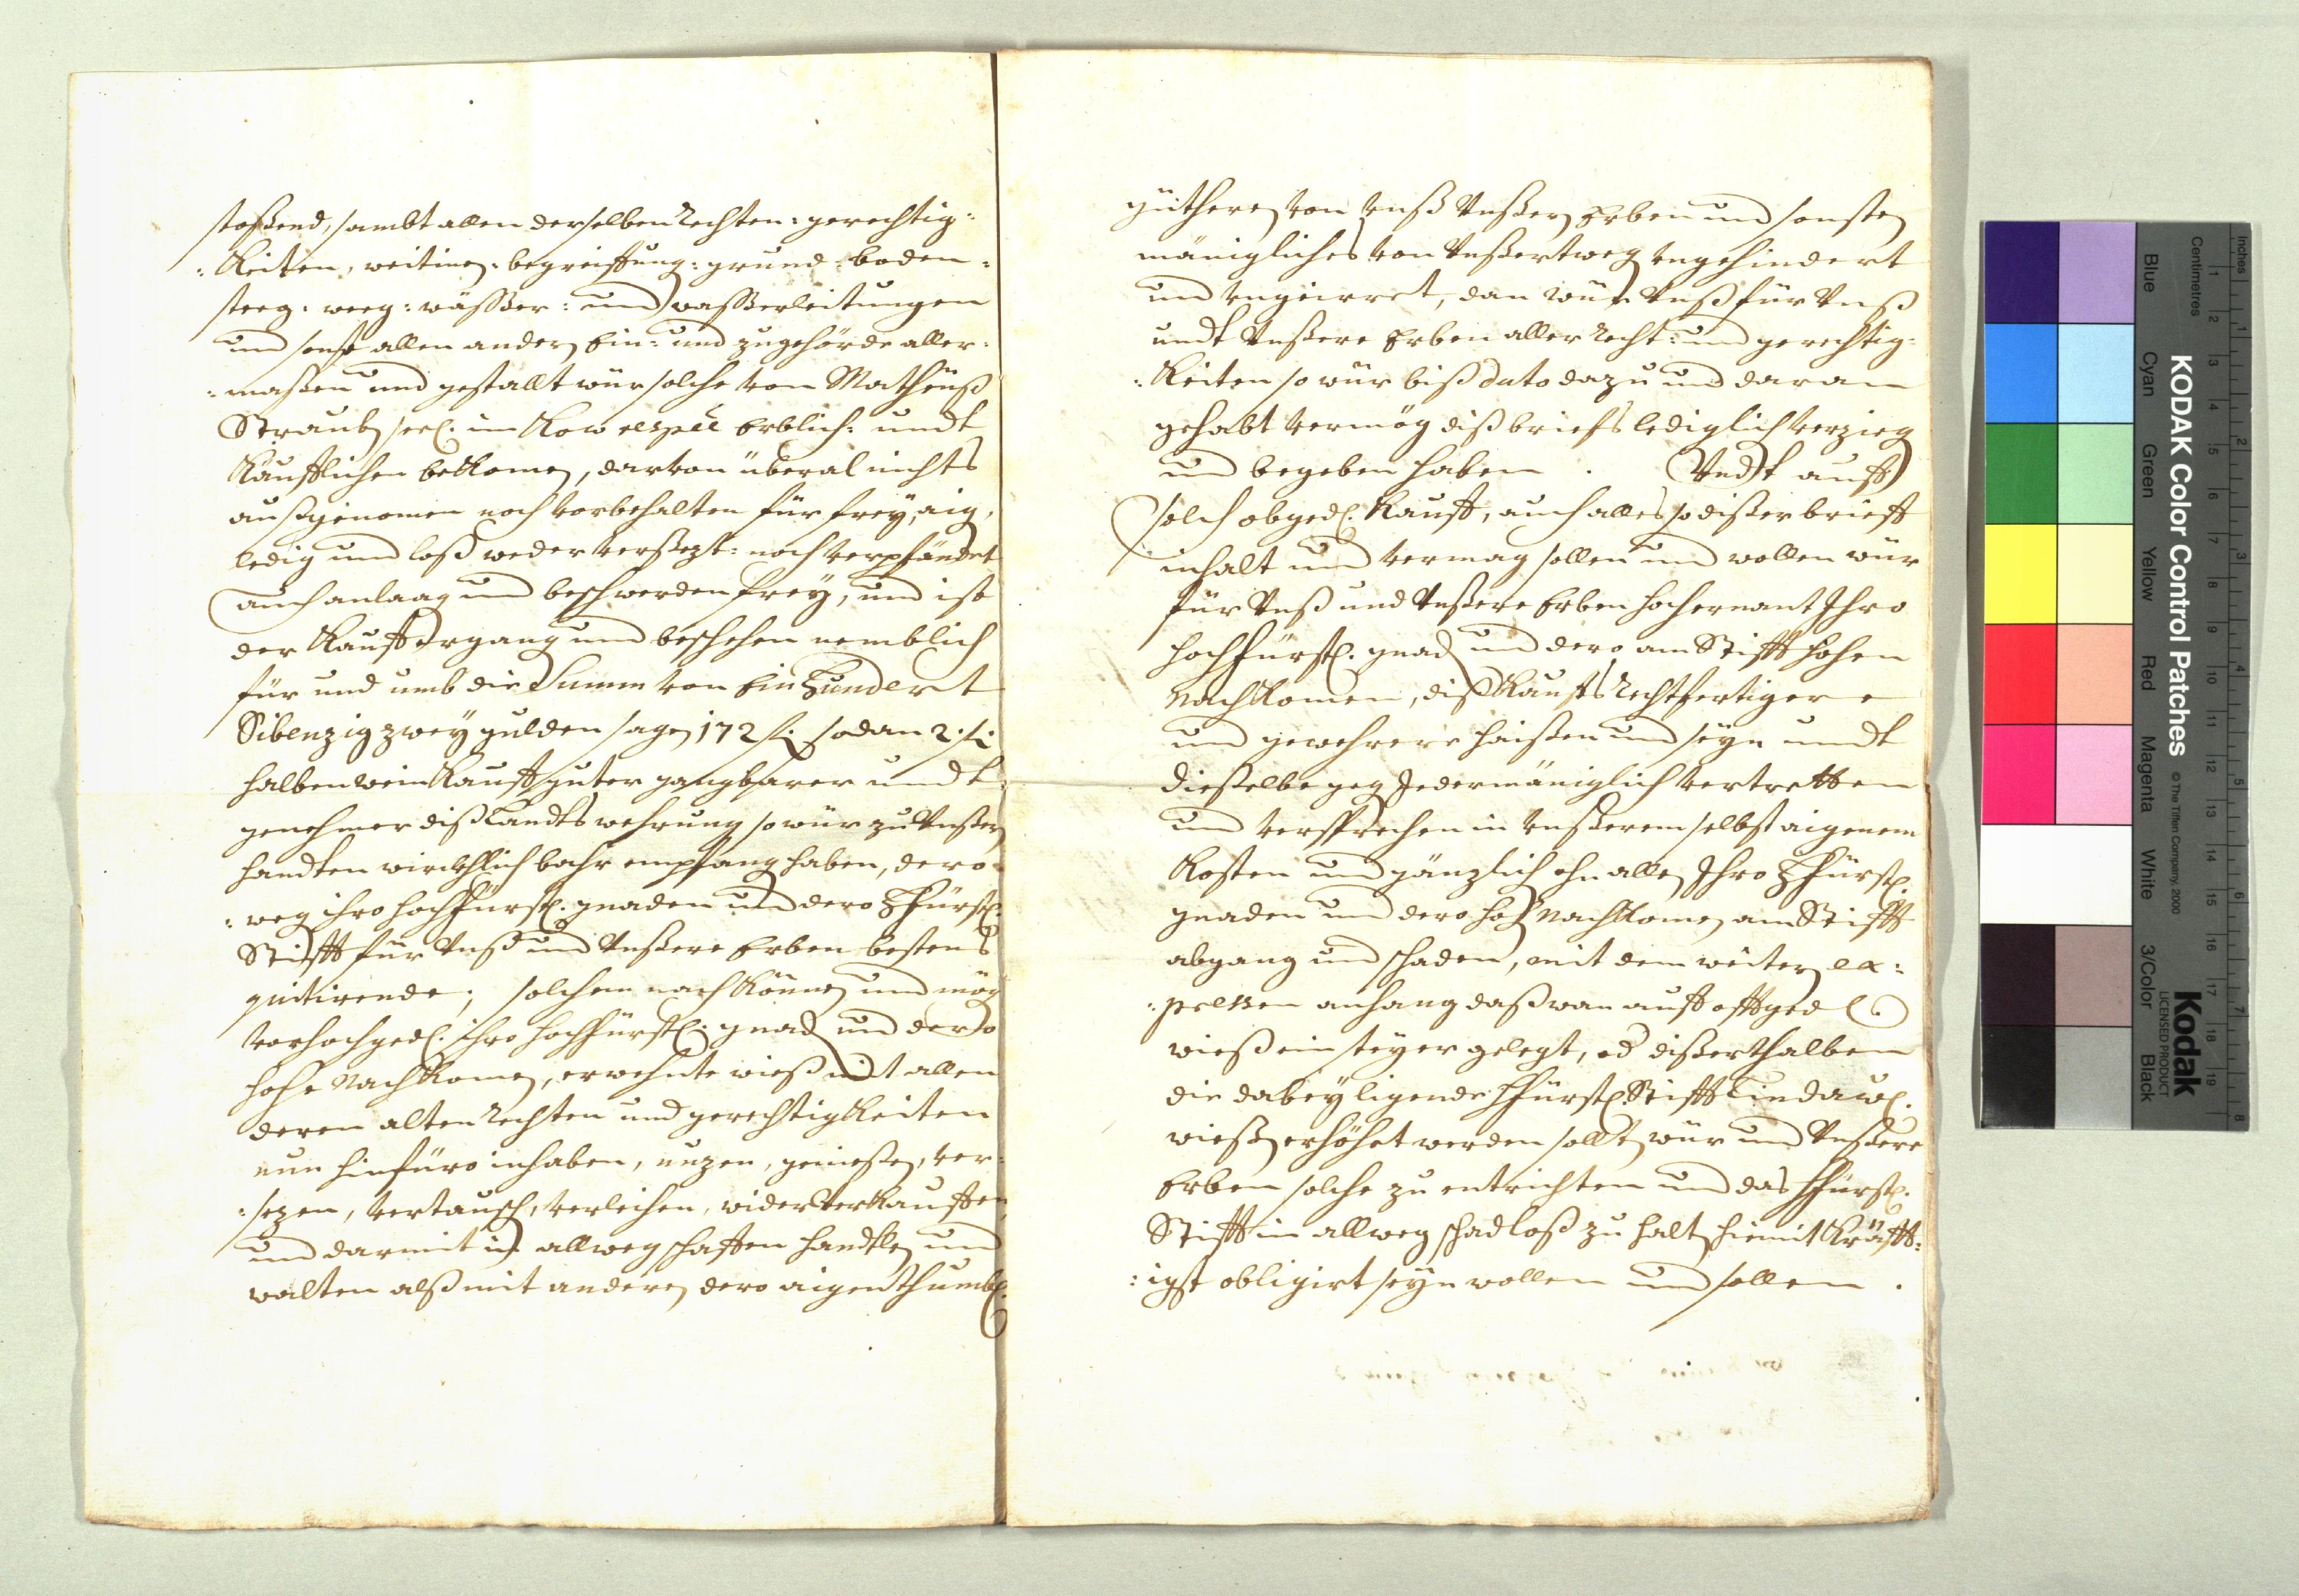 stoßend, sambt allen derselben Rechten: gerechtig:
:Keiten, weitinen: begreiffung: grund: boden:
steeg: weeg: wässer: und wasserleitungen
und sonst allen andern Ein: und zugehörde aller:
:maßen und gestallt wür solche von Matheuß
Straub seel. im erblich: undt
Käufflichen bekomen, darvon überal nichts
außgenomen noch vorbehalten für frey, aig,
ledig und loß weder versezt: noch verpfändet
auch anlaag und beschwerden frey, und ist
der Kauff ergang und beschehen nemblich
für und umb die Summ von Ein Hundert
Sibenzig zwey gulden sage 172 fl. sodan 2. fl.
halben weinKauff guter gangbarer undt
genehmer diß Landts wehrung so wür zu Unßern
handten würckhlich bahr empfang haben, dero:
:weg ihro hochfürstl. gnaden und dero Hfürstl.
Stifft für Unß und Unßere Erben bestens
quitirende; solchem nach können und mög
vorhochged. ihro hochfürstl. gnad und dero
hohe NachKomen, erwehnte wieß mit allen
deren alten Rechten und gerechtigKeiten
nun hinfüro inhaben, nuzen, genießen, ver:
:sezen, vertausch, verleihen, widerverKauffen
und darmit in allweg schaffen handlen und
walten alß mit anderen dero aigenthumbl.
gütheren von Unß Unßern Erben und sonsten
mäniglichs von Unßertweg ungehindert
und ungeirret, dan wür Unß für Unß
undt Unßere Erben aller Recht: und gerechtig:
:Keiten so wür biß dato dazu und daran
gehabt vermög diß briefs lediglich verzieg
und begeben haben . Undt auff
solch obged. Kauff, auch alles so dißer brieff
inhalt und vermag sollen und wollen wür
für Unß und Unßere Erben hochernant Ihro
hochfürstl. gnad und dero am Stifft hohen
NachKomen, diß Kauffs Rechtfertigere
und gewehrere haißen und seyn undt
dießelbe geg Jedermäniglich vertretten
und versprechen in Unßerem selbst aigenem
Kosten und gänzlich ohn allen Ihro Hfürstl.
gnaden und dero hoh NachKomen am Stifft
abgang und schaden, mit dem weitern ex:
:preßen anhang daß wan auff offtged.
wieß ein steyer gelegt, od dißerthalben
die dabey ligende Hfürstl. Stifft Lindawl.
wießen erhöhet werden sollt, wür und Unßere
Erben solche zu entrichten und das Hfürstl.
Stifft in allweg schadloß zu halt, hiemit Kräfft:
:igst obligirt seyn wollen und sollen .
KODAK Color Control Patches
© The Tiffen Company, 2000
Kodak
LICENSED PRODUCT
Inches
Centimetres
Blue
Cyan
Green
Yellow
Red
Magenta
White
3/Color
Black